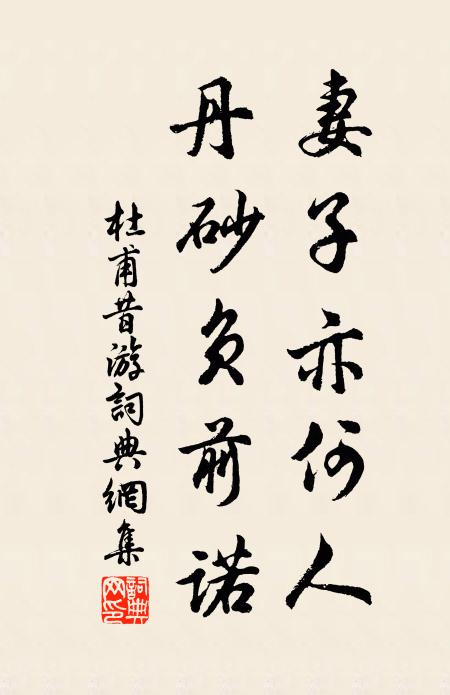 妻子亦何人
丹砂負前諾
杜甫昔游詞典網集
詞典网印